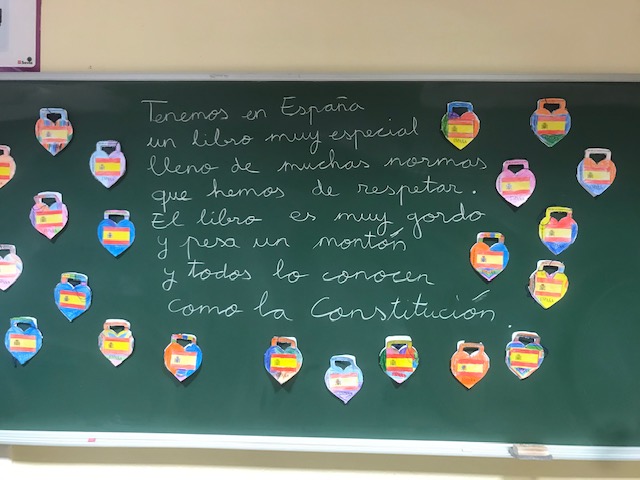 Tenemos en España
un libro muy especial
lleno de muchas normas
que hemos de respetar.
El libro es muy gordo
y pesa un montón
y todos lo conocen
como la Constitución.